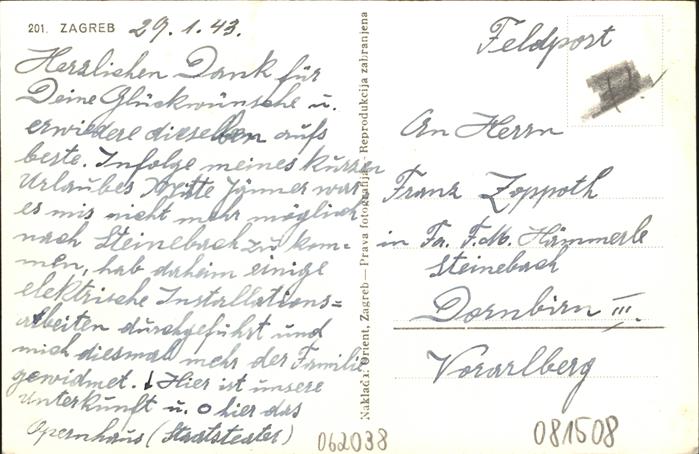 201. ZAGREB 29.1.43.
Herzlichen Dank für
Deine Glückwünsche u.
erwiedere dieselben aufs
beste. Infolge meines kurzen
Urlaubes Mitte Jänner war
es mir nicht mehr möglich
nach Steinebach zu kom-
men, hab daheim einige
elektrische Installations=
arbeiten durchgeführt und
mich diesmal mehr der Familie
gewidmet. ↓ Hier ist unsere
Unterkunft u. o hier das
Opernhaus (Staatsteater)
062038
Naklada: Orient, Zagreb — Prava fotografija. Reprodukcija zabranjena
Feldpost
An Herrn
Franz Zoppoth
in Fa. F.M. Hämmerle
Steinebach
Dornbirn III.
Vorarlberg
081508